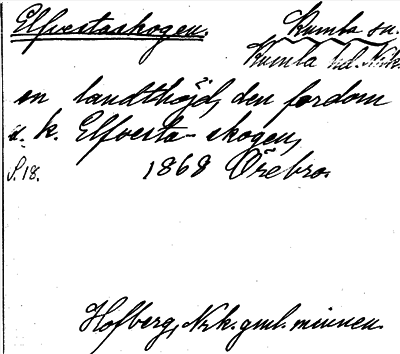 Elfvestaskogen. Kumla sn.
Kumla hd. Nrk.
en landthöjd, den fordom
s. k. Elfvesta-skogen,
S. 18. 1868 Örebro.
Hofberg, Nrk. gml. minnen.